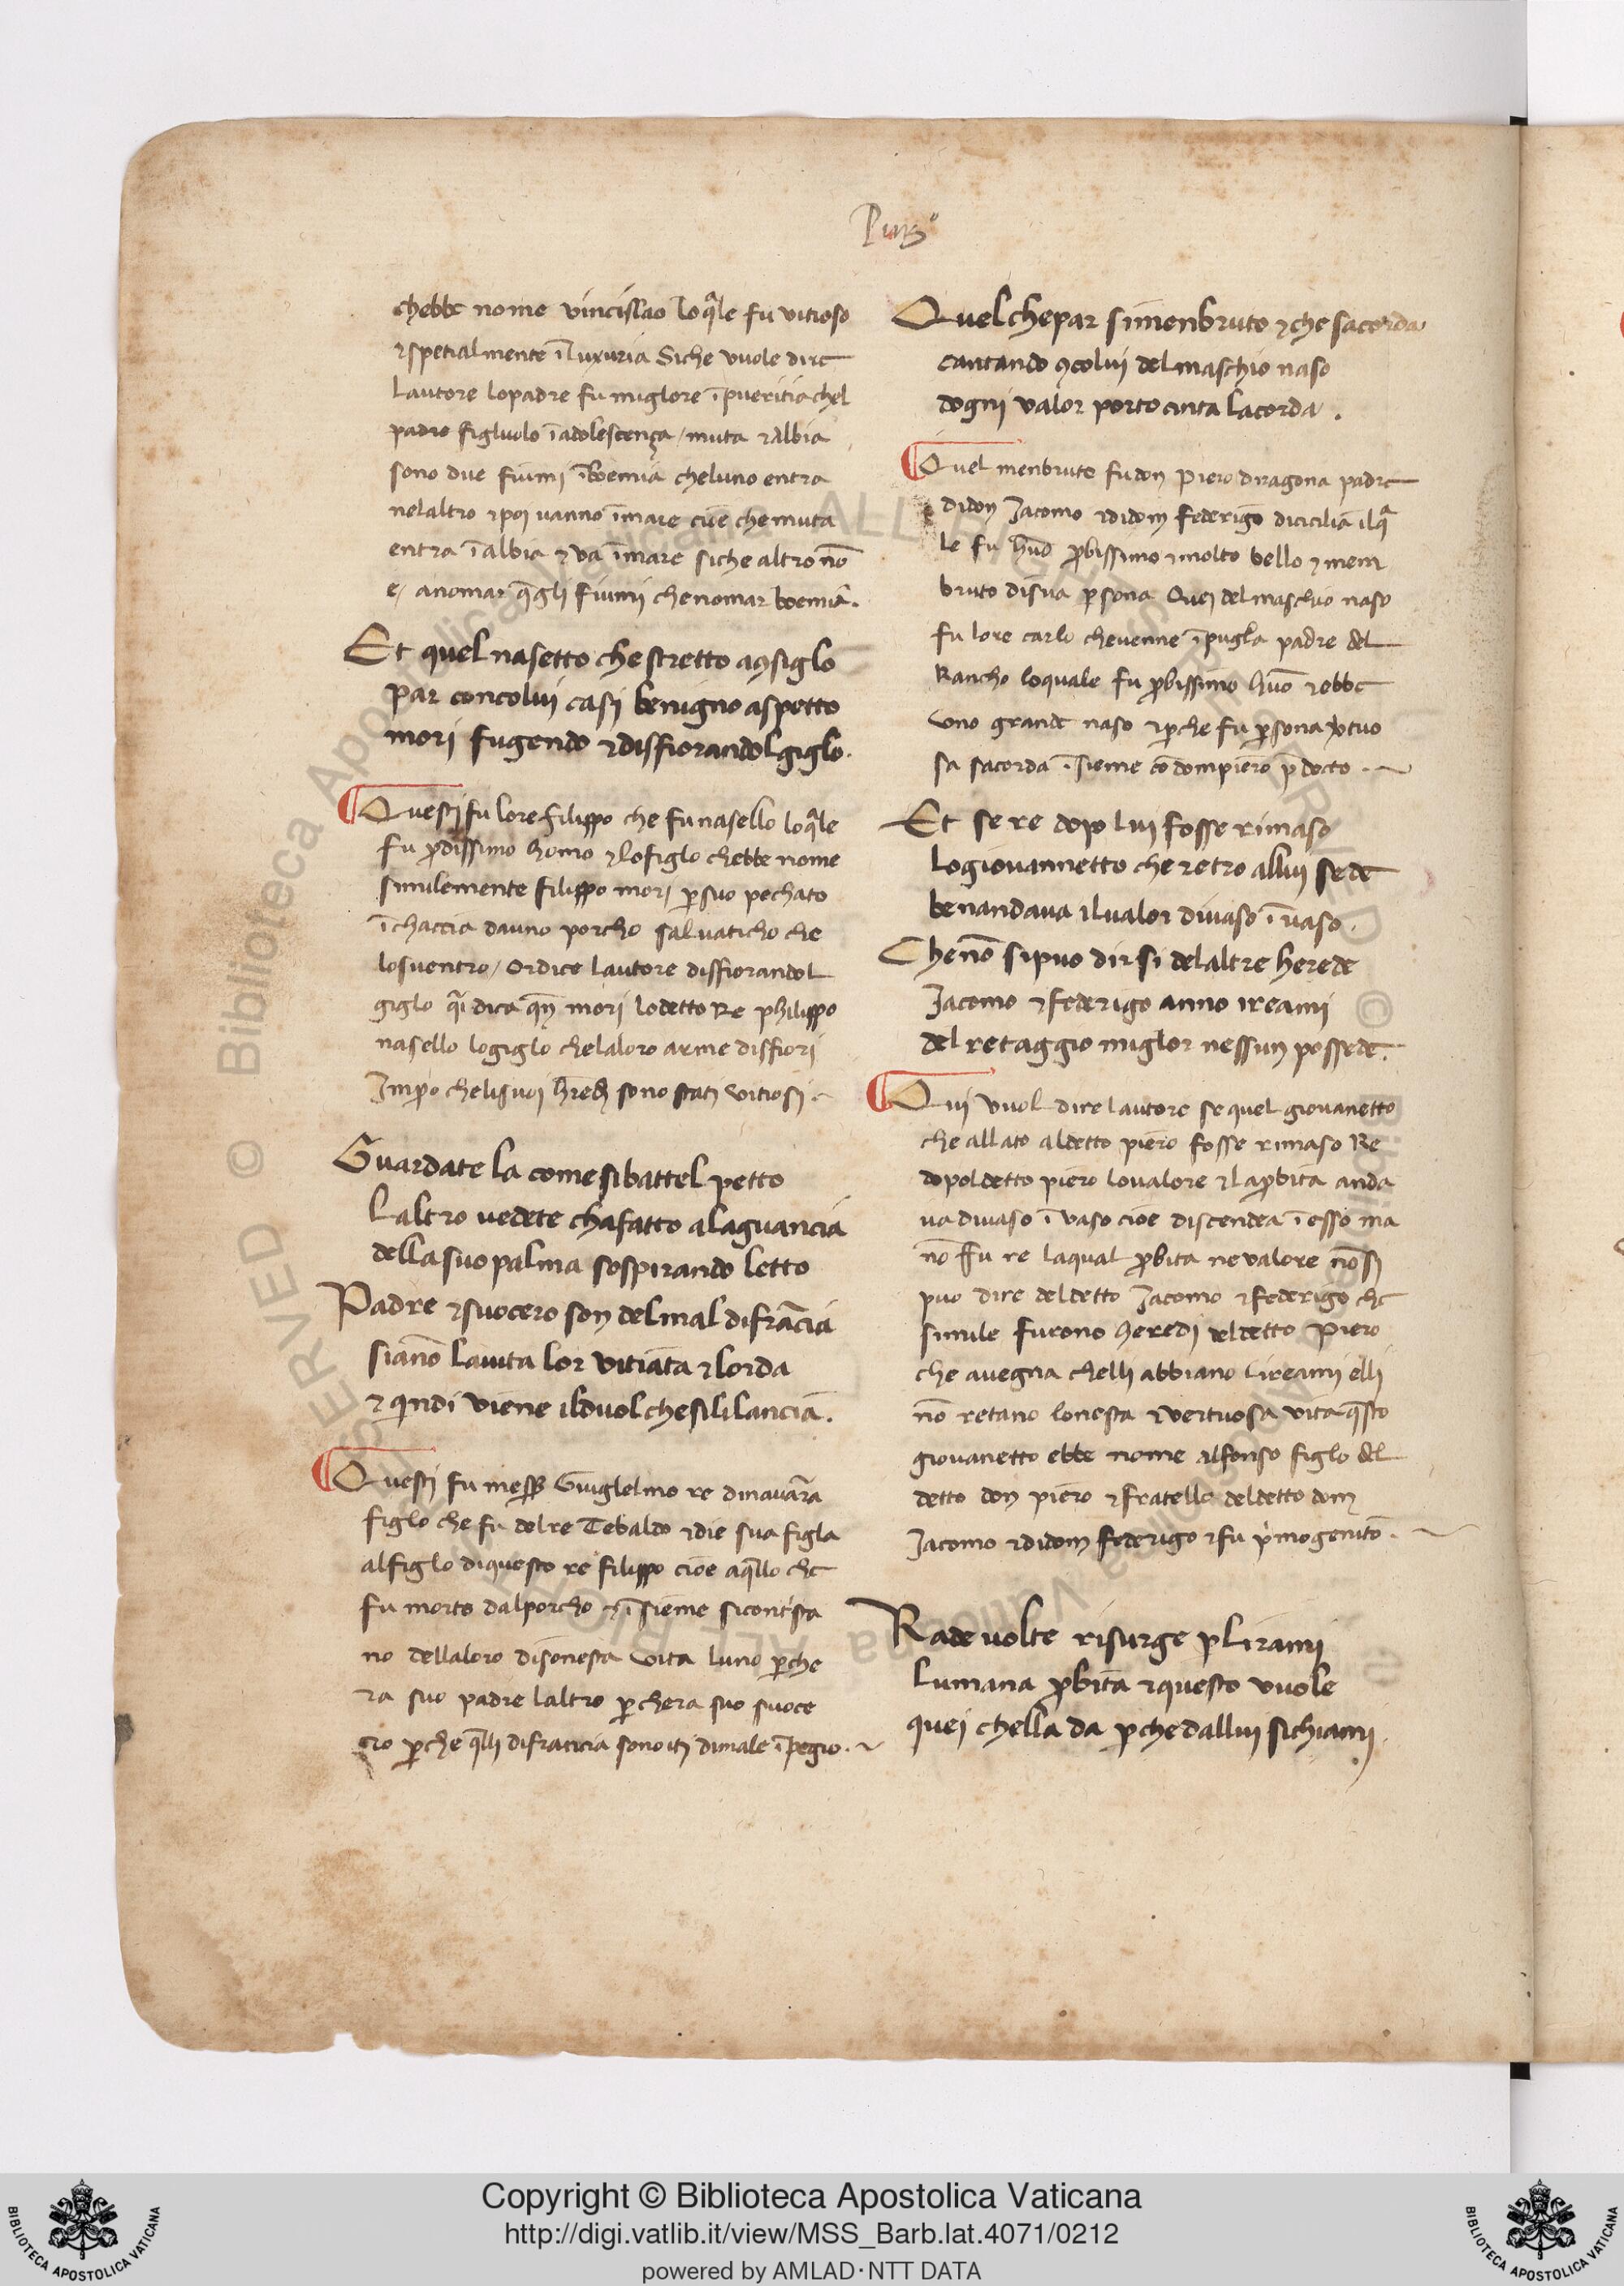 Purg°
chebbe nome vincislao loqͣle fu vitioso
⁊spetialmente ī luxuria Siche vuole dire
lautore lopadre fu miglore ī pueritia chel
padre figluolo ī adolescença / muta ⁊ Albia
sono due fiumi ī boemia cheluno entra
nelaltro ⁊poi vanno īmare cioe chemuta
entra ī albia ⁊ va īmare siche altro nō
e / anomar q̄gli fiumi chenomar boemia.
Et quel nasetto che stretto aꝯsiglo
par concolui casi benigno aspetto
mori fugendo ⁊disfiorandol giglo.
Questi fu lore filippo che fu nasello loqͣle
fu ꝓdissimo homo ⁊lo figlo chebbe nome
similemente filippo mori ꝑsuo pechato
ī chaccia dauno porcho saluaticho che
losventro / Ordice lautore disfiorandol
giglo qͣi dica qn̄ mori lodetto Re philippo
nasello logiglo chelaloro arme disfiori
Imꝑo chelisuoi h̄redi sono stati vitiosi.
Guardate la come sibattel petto
Laltro vedete chafatto alaguancia
della suo palma sospirando letto
Padre ⁊suocero son delmal difrācia
sianō lauita lor vitiata ⁊lorda
⁊ quindi viene ilduol chesili lancia.
Questi fu meſſ Guiglelmo re dinauarra
figlo che fu delre Tebaldo ⁊die sua figla
alfiglo diquesto re filippo cioe aq̄llo che
fu morto dalporcho ⁊ īsieme sicontrista
no dellaloro disonesta vita luno ꝑche
ra suo padre laltro ꝑchera suo suoce
ro ꝑche q̄lli difrancia sono iti dimale ī pegio.
Quel chepar simenbruto ⁊che sacorda
cantando ꝯcolui delmaschio naso
dogni valor porto cinta lacorda.
Quel menbruto fu don Piero diragona padre
didon Jacomo ⁊didom Federigo dicicilia ilqͣ
le fu huō ꝓbissimo ⁊molto bello ⁊ mem
bruto disua ꝑsona Quei del maschio naso
fu lore carlo chevenne ī pugla padre del
Rancho loquale fu ꝓbissimo huō ⁊ebbe
uno grande naso ⁊ꝑche fu ꝑsona vtuo
sa sacorda īsieme cō dompiero p̄docto.
Et se re dopo lui fosse rimaso
logiovannetto che retro allui sede
benandaua ilualor diuaso ī uaso.
Che nō sipuo dirsi delaltre herede
Jacomo ⁊federigo anno ireami
del retaggio miglor nessun possede.
Qui vuol dire lautore se quel giouanetto
che allato aldetto piero fosse rimaso Re
dopoldetto piero loualore ⁊laꝓbita anda
ua diuaso ī vaso cioe discendea ī esso ma
nō fu re laqual ꝓbita ne valore nōsi
puo dire deldetto Jacomo ⁊federigo che
simile furono heredi deldetto Piero
che auegna chelli abbiano lireami elli
nō retano lonesta ⁊vertuosa vita q̄sto
giouanetto ebbe nome alfonso figlo del
detto don piero ⁊fratello deldetto dom
Jacomo ⁊didom federigo ⁊fu p̍mogenito.
Rade uolte risurge ꝑ li rami
lumana ꝓbita ⁊questo vuole
quei chella da ꝑche dallui sichiami.
Copyright © Biblioteca Apostolica Vaticana
http://digi.vatlib.it/view/MSS_Barb.lat.4071/0212
powered by AMLAD·NTT DATA
BIBLIOTECA APOSTOLICA VATICANA
BIBLIOTECA APOSTOLICA VATICANA